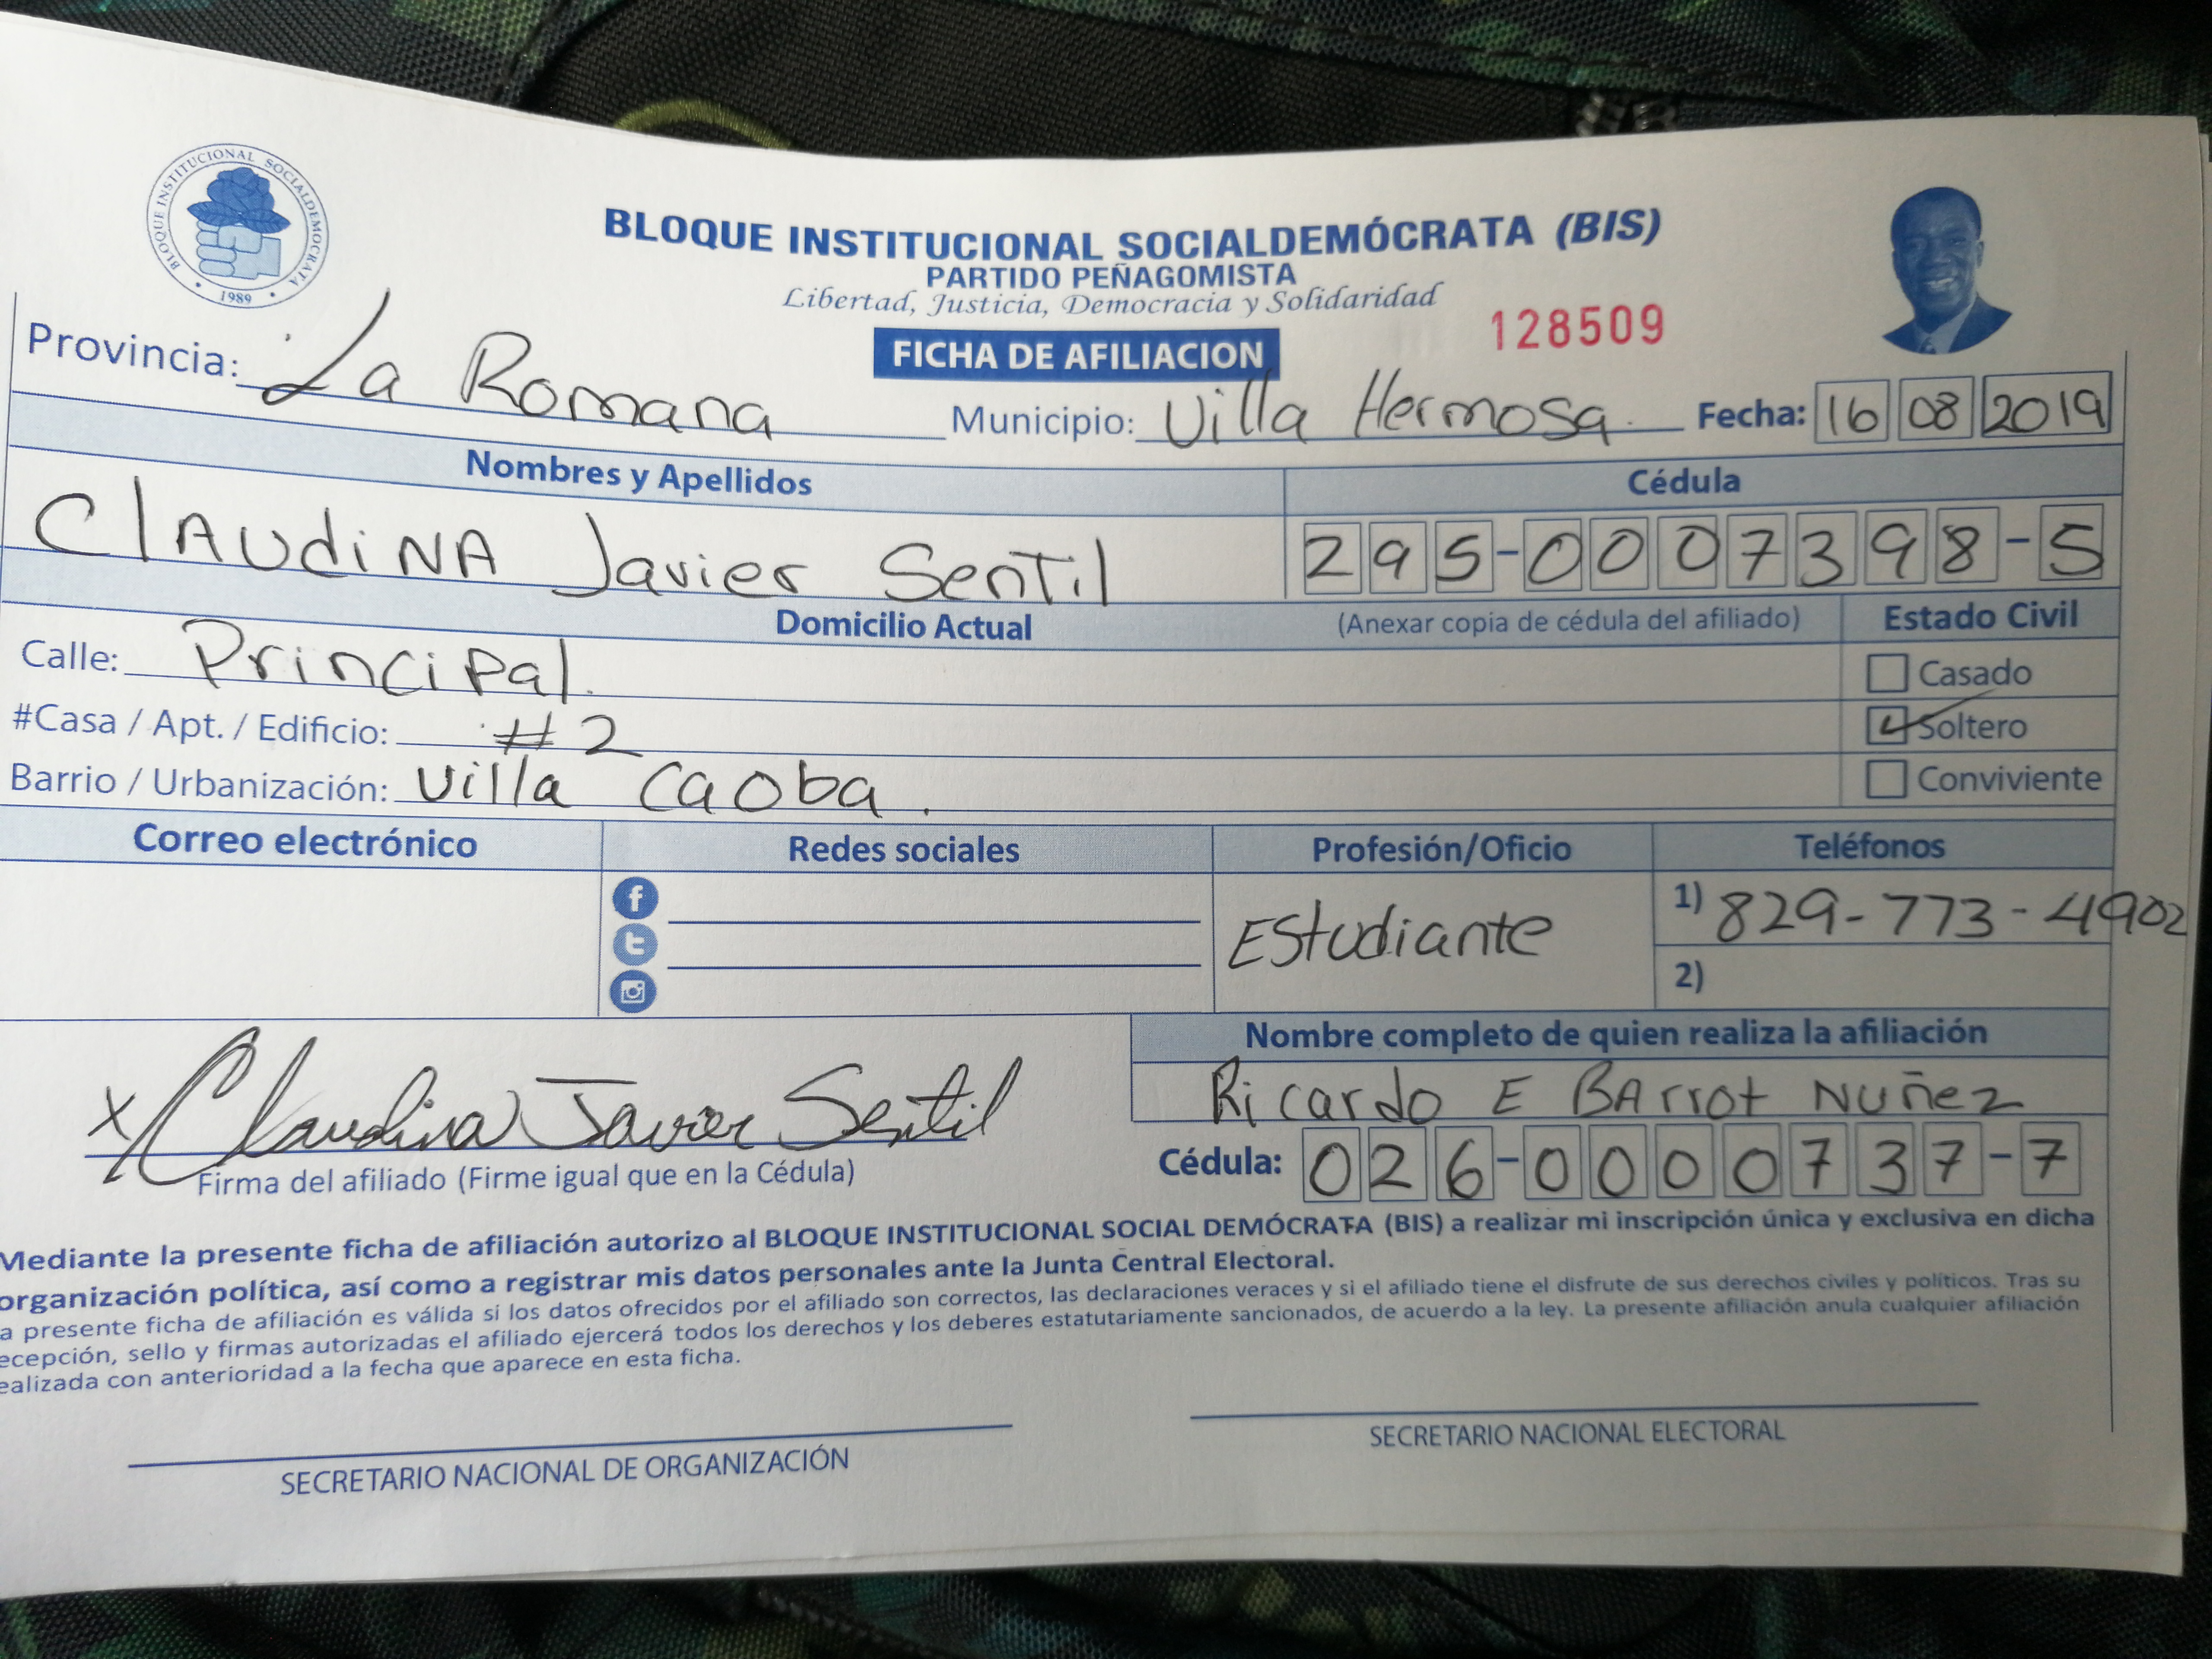 BLOQUE INSTITUCIONAL SOCIALDEMOCRATA
1989
BLOQUE INSTITUCIONAL SOCIALDEMÓCRATA (BIS)
PARTIDO PEÑAGOMISTA
Libertad, Justicia, Democracia y Solidaridad
128509
FICHA DE AFILIACION
Provincia: La Romana Municipio: Villa Hermosa. Fecha: 16 08 2019
Nombres y Apellidos Cédula
ClAUdiNA Javier Sentil 295-0007398-5
Domicilio Actual (Anexar copia de cédula del afiliado) Estado Civil
Calle: Principal. Casado
#Casa / Apt. / Edificio: #2 Soltero
Barrio / Urbanización: Villa Caoba. Conviviente
Correo electrónico Redes sociales Profesión/Oficio Teléfonos
Estudiante 1) 829-773-4902
2)
Nombre completo de quien realiza la afiliación
Ricardo E BArrot NUñez
x Claudina Javier Sentil
Firma del afiliado (Firme igual que en la Cédula) Cédula: 026-0000737-7
Mediante la presente ficha de afiliación autorizo al BLOQUE INSTITUCIONAL SOCIAL DEMÓCRATA (BIS) a realizar mi inscripción única y exclusiva en dicha
organización política, así como a registrar mis datos personales ante la Junta Central Electoral.
a presente ficha de afiliación es válida si los datos ofrecidos por el afiliado son correctos, las declaraciones veraces y si el afiliado tiene el disfrute de sus derechos civiles y políticos. Tras su
ecepción, sello y firmas autorizadas el afiliado ejercerá todos los derechos y los deberes estatutariamente sancionados, de acuerdo a la ley. La presente afiliación anula cualquier afiliación
ealizada con anterioridad a la fecha que aparece en esta ficha.
SECRETARIO NACIONAL DE ORGANIZACIÓN SECRETARIO NACIONAL ELECTORAL